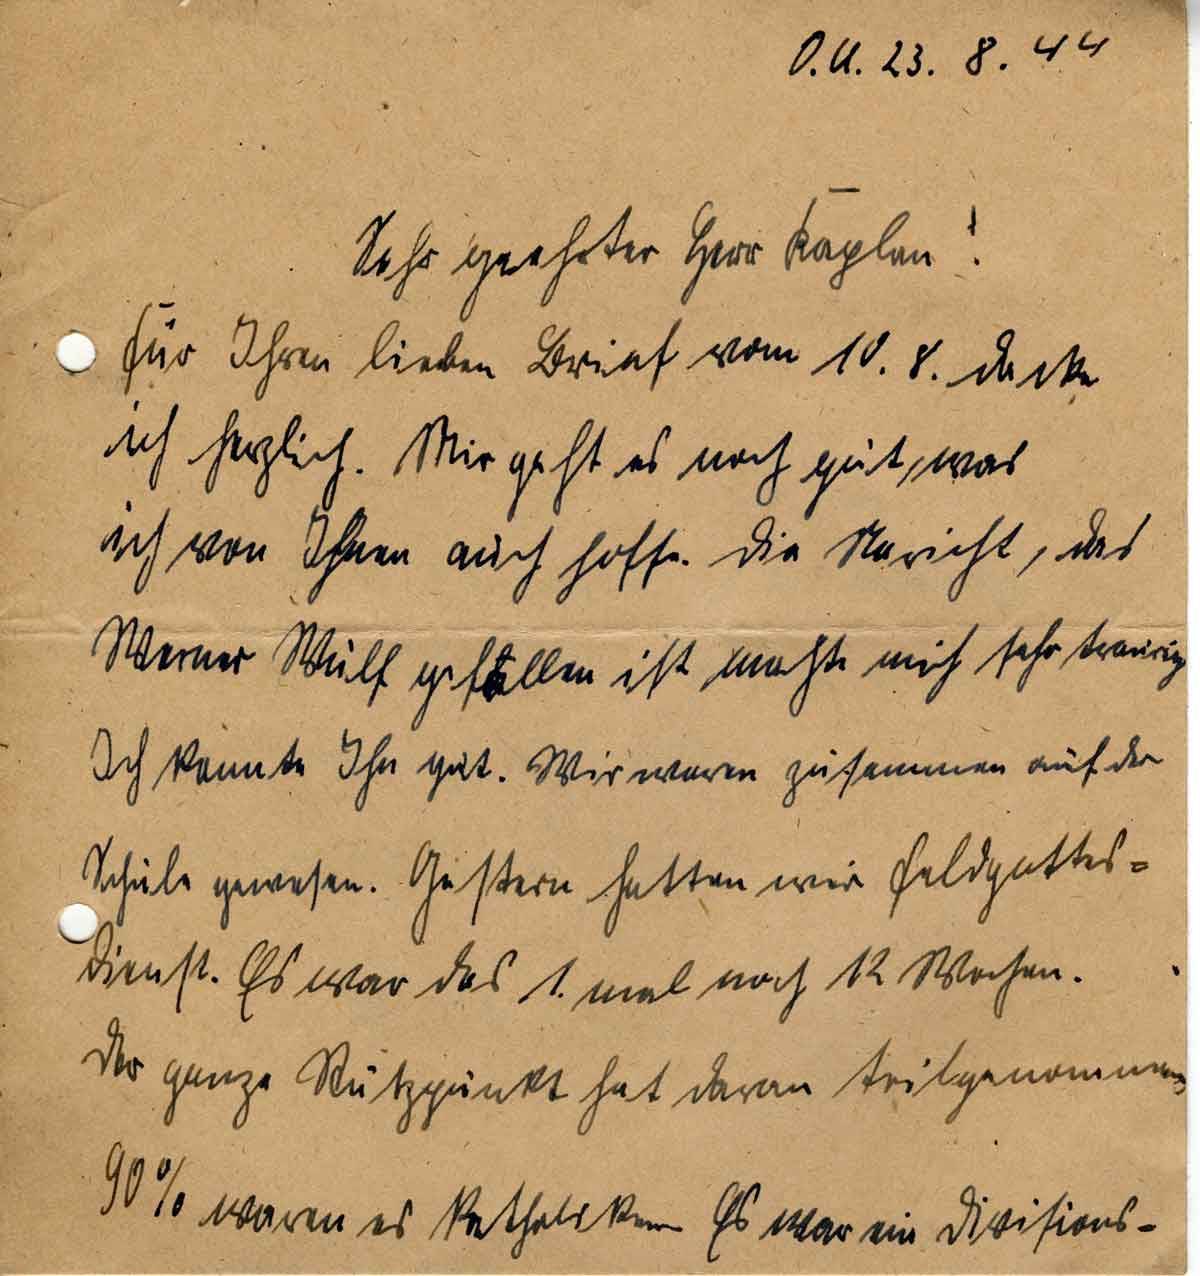 O.U. 23. 8. 44
Sehr geehrter Herr Kaplan!
Für Ihren lieben Brief vom 10. 8. dacke
ich herzlich. Mir geht es noch gut, was
ich von Ihnen auch hoffe. Die Naricht, das
Werner Wulf gefallen ist machte mich sehr traurig
Ich kannte Ihn gut. Wir waren zusammen auf der
Schule gewesen. Gestern hatten wir Feldgottes=
dienst. Es war das 1. mal nach 12 Wochen.
Der ganze Stützpunkt hat daran teilgenommen
90% waren es Katholiken Es war ein Divisions-